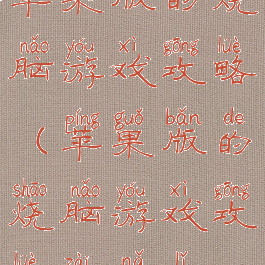 苹果版的烧
nǎo yóu xì gōng lüè
脑游戏攻略
píng guǒ bǎn de
（苹果版的
shāo nǎo yóu xì gōng
烧脑游戏攻
lüè zài nǎ lǐ